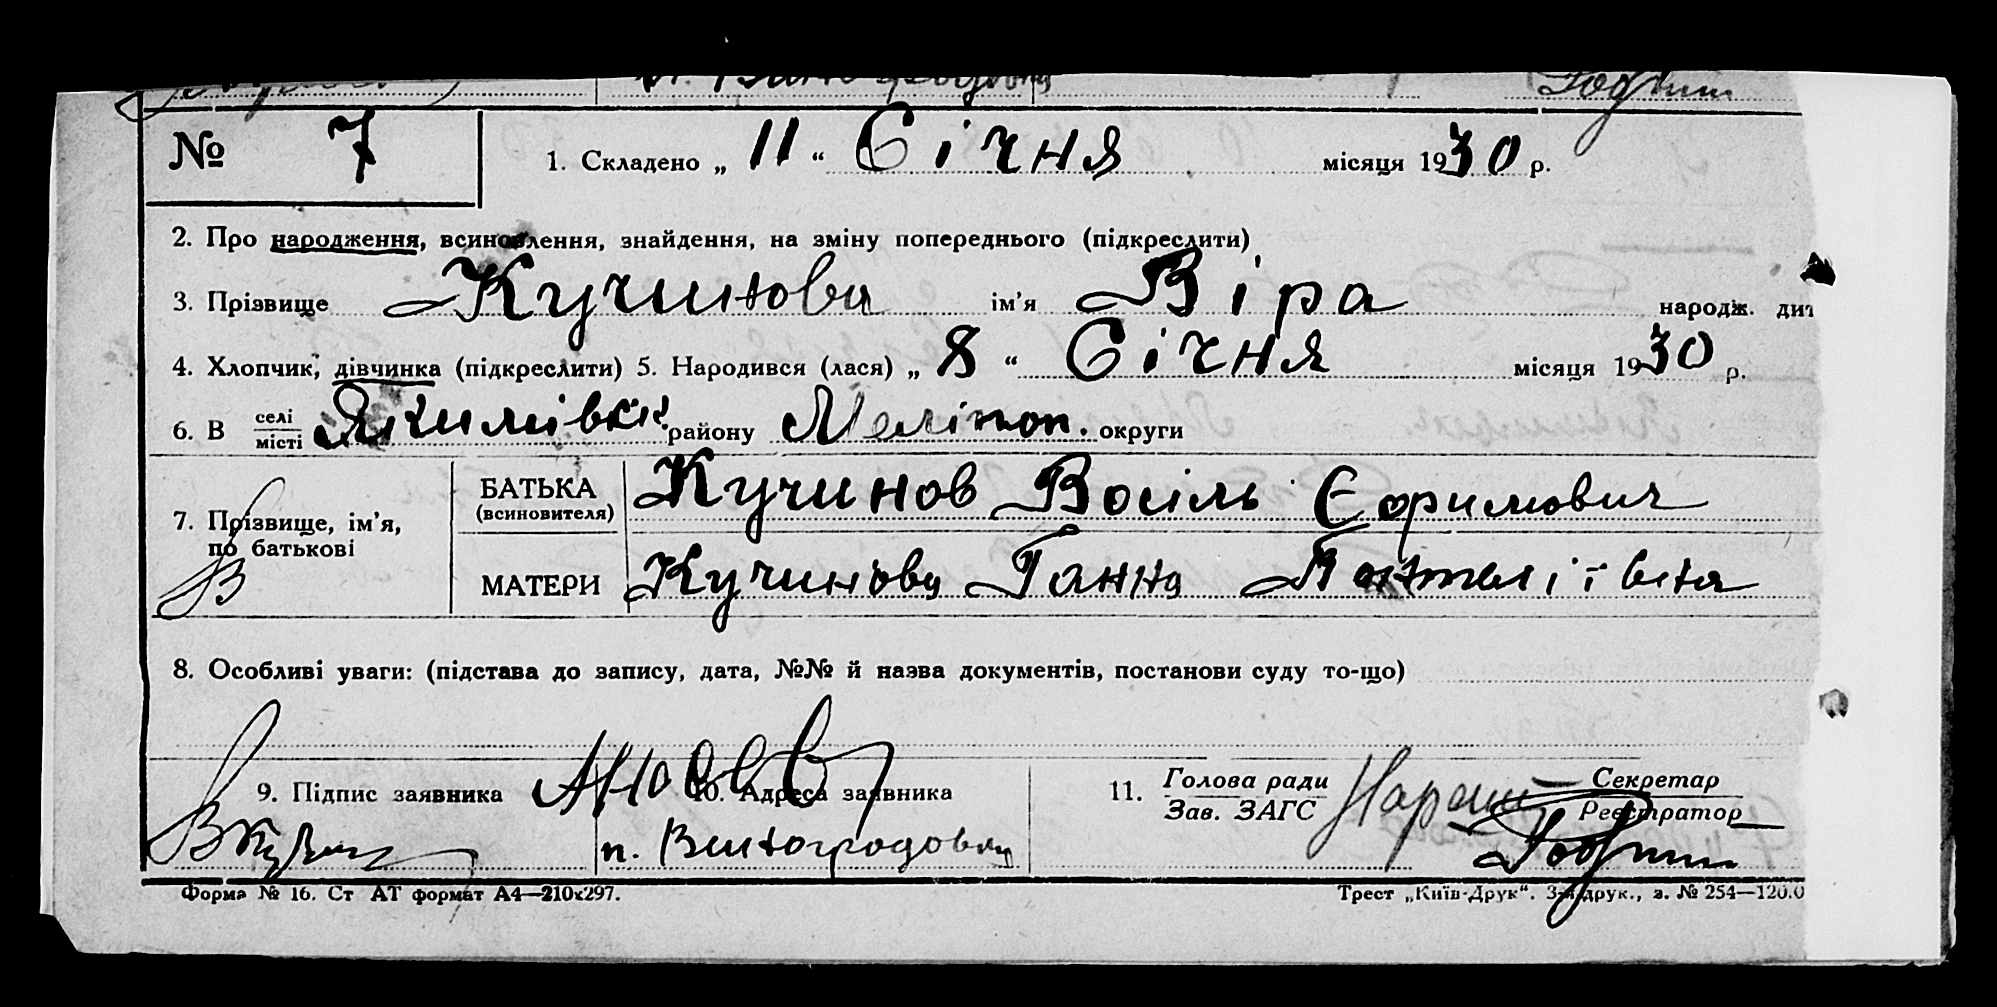 № 7 1. Складено „ 11 “ Січня місяця 1930 р.
2. Про народження, всиновлення, знайдення, на зміну попереднього (підкреслити)
3. Прізвище Кучинова ім’я Віра народж. дит
4. Хлопчик, дівчинка (підкреслити) 5. Народився (лася) „ 8 “ Січня місяця 1930 р.
6. В селі місті Якимівск. району Меліт оп. округи
7. Прізвище, ім’я, по батькові
БАТЬКА (всиновителя) Кучинов Восіль Єфимович
МАТЕРИ Кучинова Ганна
8. Особливі уваги: (підстава до запису, дата, №№ й назва документів, постанови суду то-що)
9. Підпис заявника 10. Адреса заявника 11. Голова ради Секретар
Зав. ЗАГС Реєстратор
п. Виноградовка
Форма № 16. Ст АТ формат А4—210х297. Трест „Київ-Друк“. 3-я друк., з. № 254—120.0